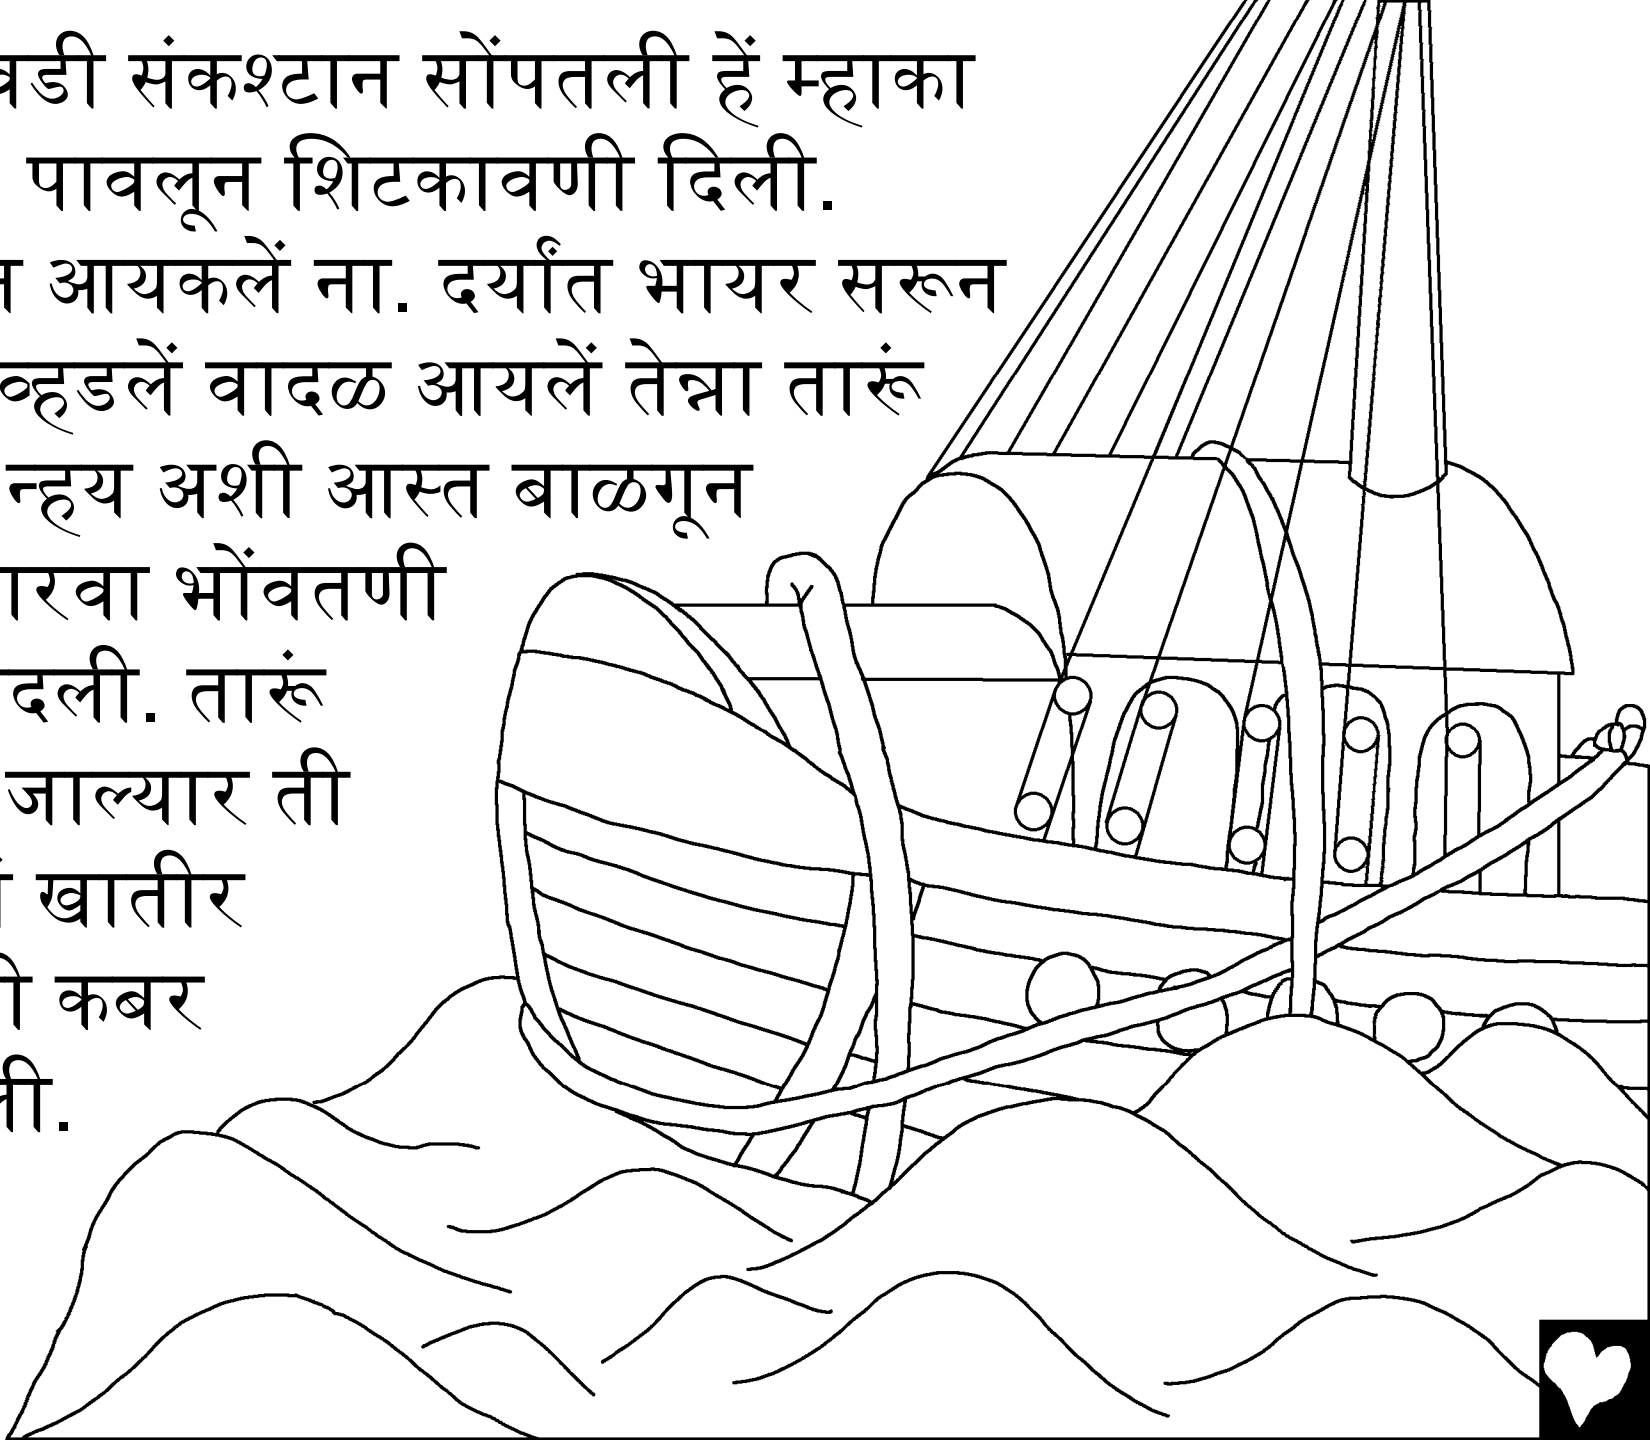 संकश्टान सोंपतली हें म्हाका
पावलून शिटकावणी दिली.
आयकलें ना. दर्यांत भायर सरून
व्हडलें वादळ आयलें तेन्ना तारूं
न्हय अशी आस्त बाळगून
भोंवतणी
तारूं
जाल्यार ती
खातीर
कबर